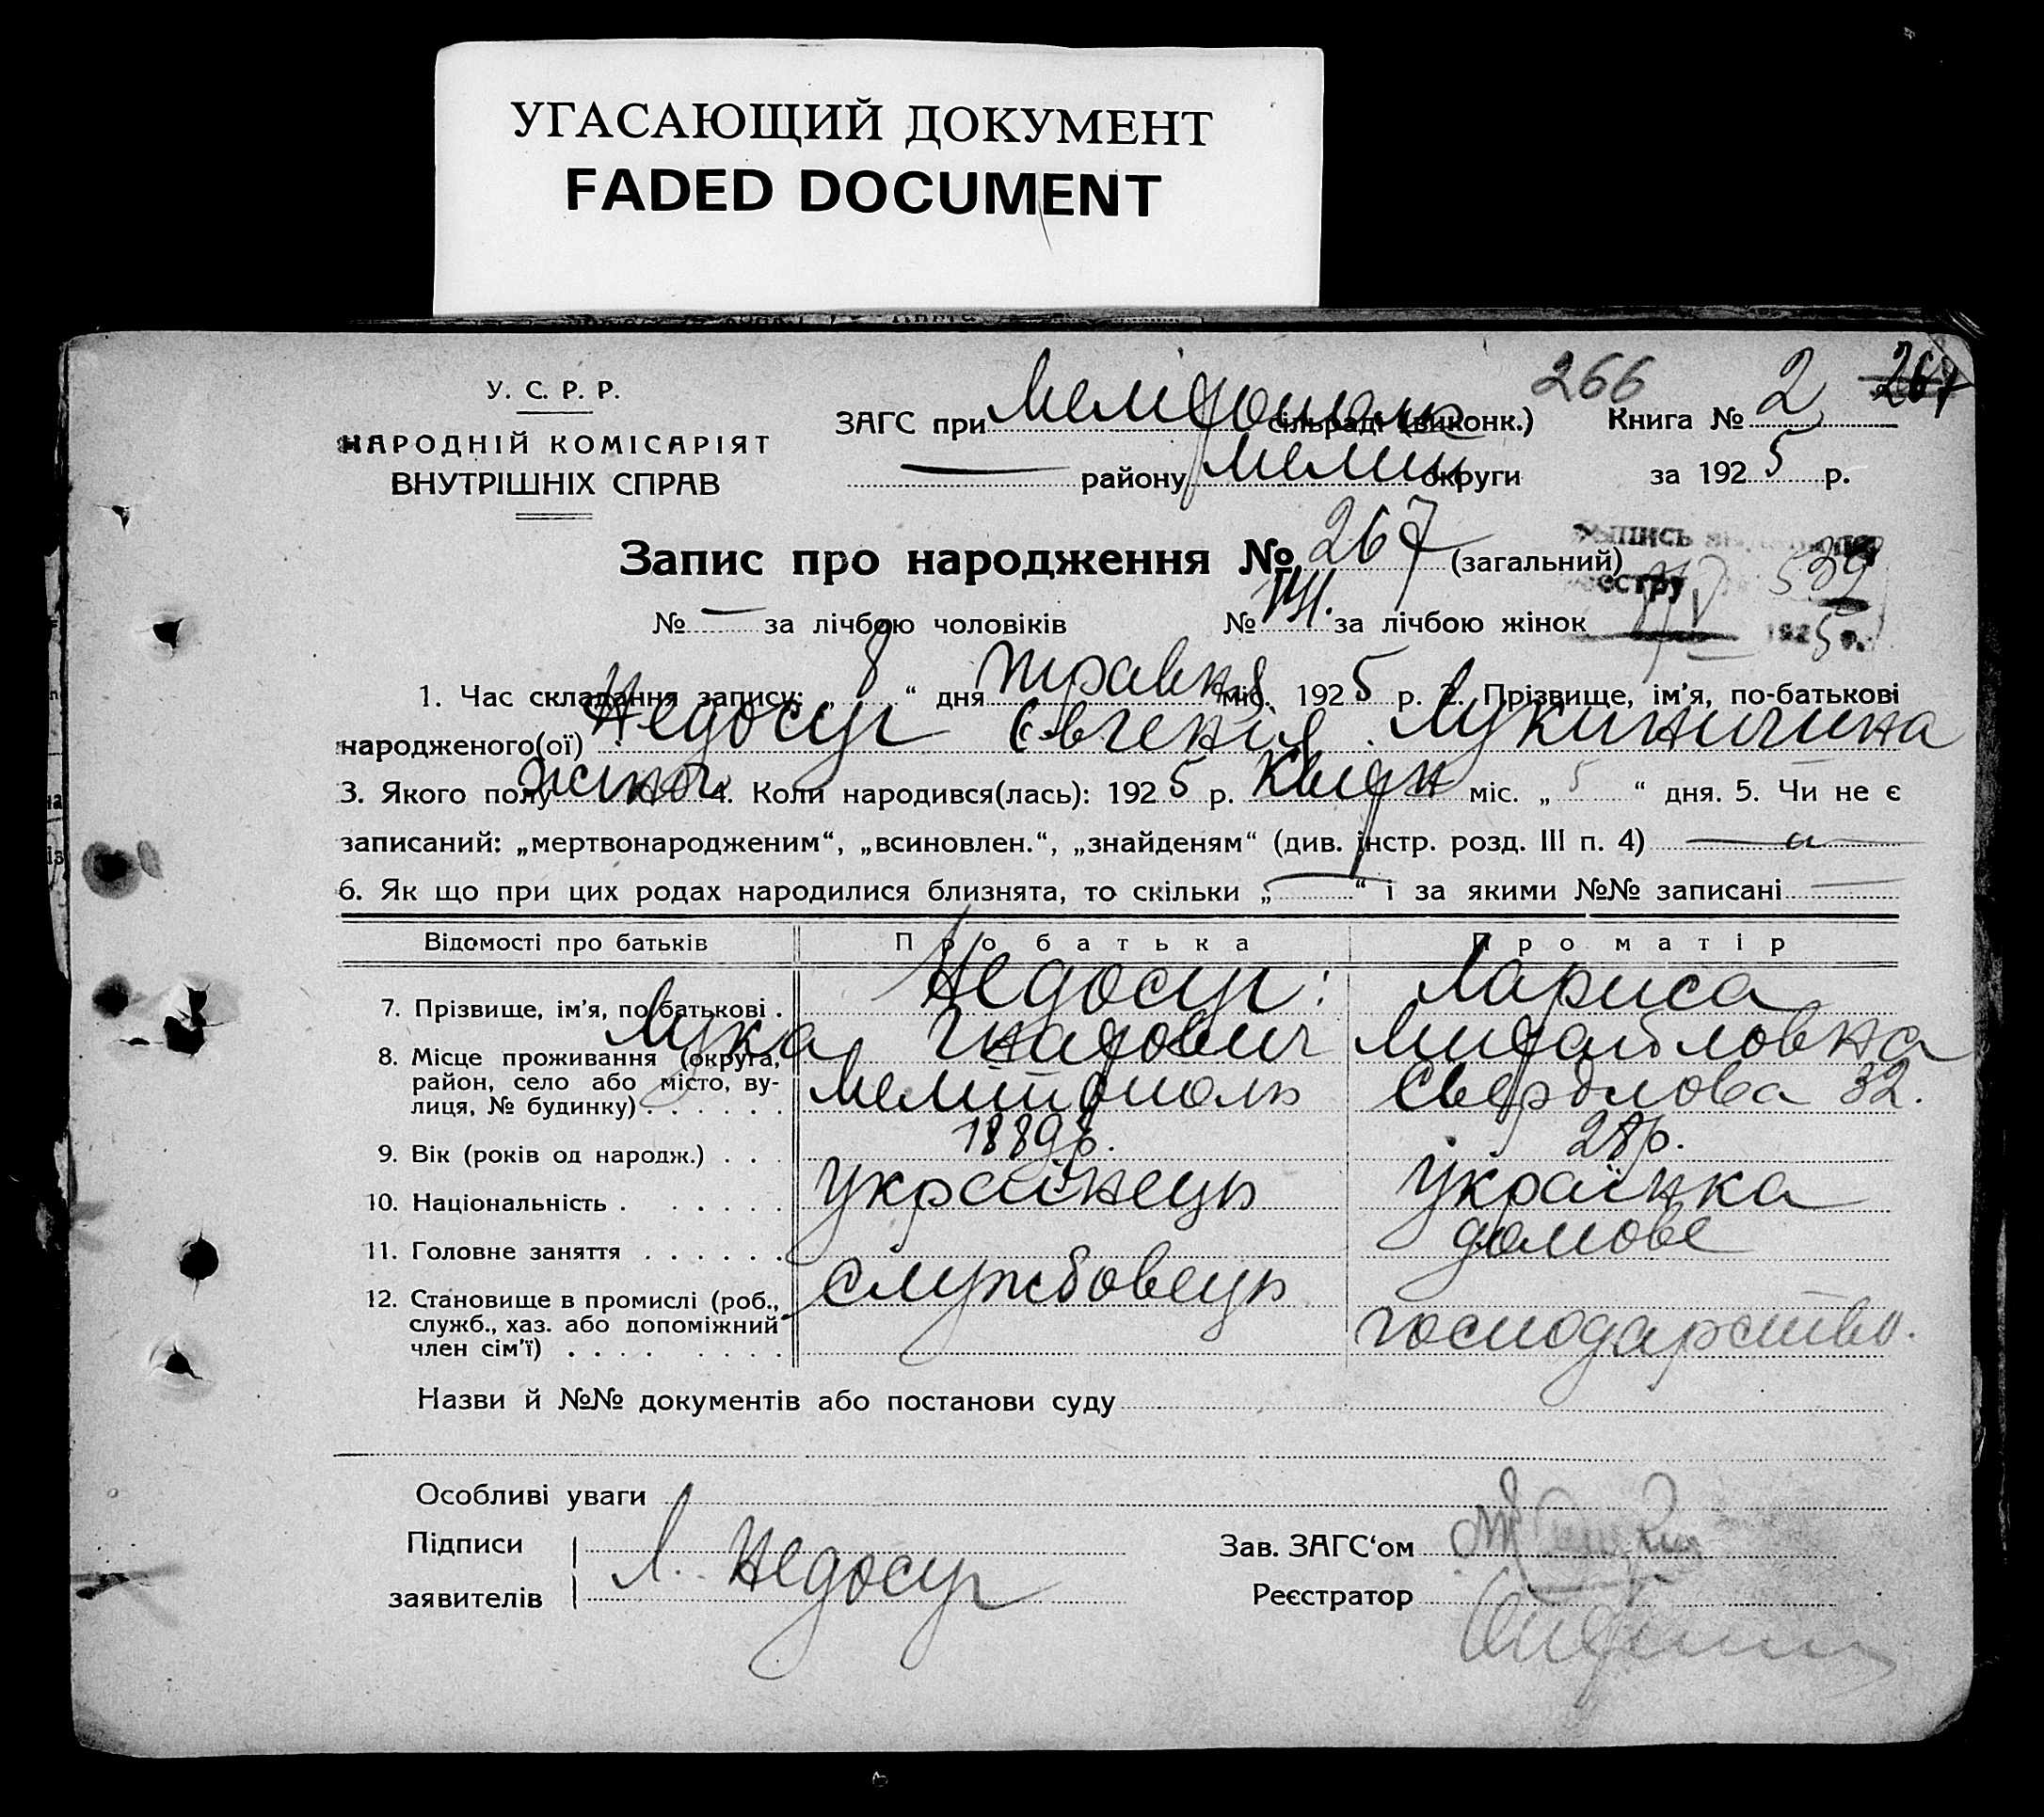 УГАСАЮЩИЙ ДОКУМЕНТ
FADED DOCUMENT
У. С. Р. Р.
НАРОДНІЙ КОМІСАРІЯТ
ВНУТРІШНІХ СПРАВ
266
267
ЗАГС при сільраді (виконк.) Книга № 2
— району Мелит округи за 1925 р.
Запис про народження № 267 (загальний)
№ — за лічбою чоловіків № 141. за лічбою жінок
1. Час складання запису: „ 8 “ дня травня міс. 1925 р. 2. Прізвище, ім'я, по-батькові
народженого(ої) Недосуг Євгенія Лукинична
3. Якого полу жіноч 4. Коли народився(лась): 1925 р. Квітн міс. „ 5 “ дня. 5. Чи не є
записаний: „мертвонародженим“, „всиновлен.“, „знайденям“ (див. інстр. розд. III п. 4) —
6. Як що при цих родах народилися близнята, то скільки „ — “ і за якими №№ записані —
Відомості про батьків Про батька Про матір
7. Прізвище, ім'я, по батькові . Недосуг Лариса
Лука Гнатович Михайловна
8. Місце проживання (округа, район, село або місто, ву-
лиця, № будинку) . . . . . . Мелітополь Свердлова 32.
9. Вік (років од народж.) . . . 1889 р. 28 р.
10. Національність . . . . . . українець українка
11. Головне заняття . . . . . . домове
12. Становище в промислі (роб., службовець
служб., хаз. або допоміжний господарство.
член сім'ї) . . . . . . . .
Назви й №№ документів або постанови суду
Особливі уваги
Підписи Л. Недосуг Зав. ЗАГС‘ом
заявителів Реєстратор